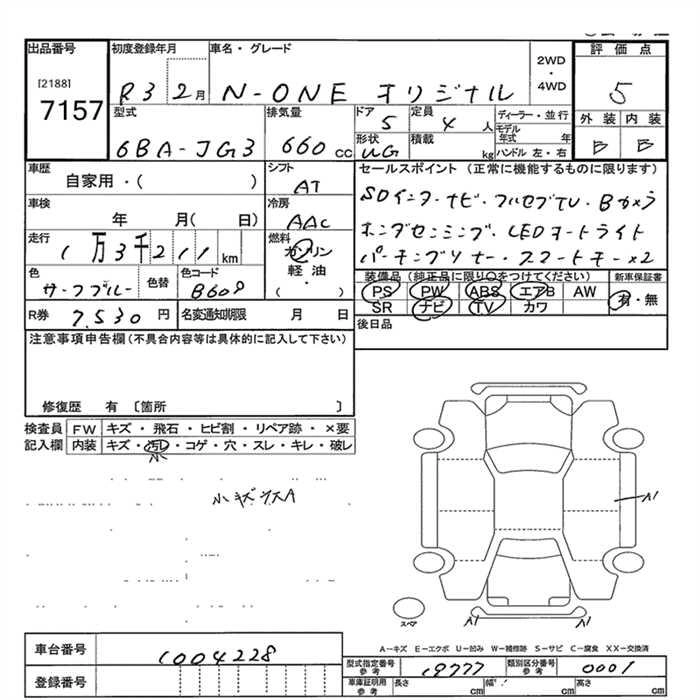 出品番号 初度登録年月 車名・グレード 2WD・4WD 評価点
[2188]
7157 R3 2月 N-ONE オリジナル 5
型式 排気量 ドア 定員 ディーラー・並行 外装 内装
6BA-JG3 660cc 5 4人 モデル年式 年 B B
形状 積載 kg ハンドル 左・右
車歴 シフト セールスポイント (正常に機能するものに限ります)
自家用・( ) AT SDインターナビ・フルセグTV・Bカメラ
車検 冷房
年 月( 日) AAC ホンダセンシング・LEDオートライト
走行 燃料
1万3千211km ガソリン パーキングソナー・スマートキー×2
軽・油
( )
色 色替 色コード 装備品 (純正品に限り○をつけてください) 新車保証書
サーフブルー B608 PS PW ABS エアB AW 有・無
SR ナビ TV カワ
R券 7,530円 名変通知期限 月 日 後日品
注意事項申告欄(不具合内容等は具体的に記入して下さい)
修復歴 有 〔箇所 〕
検査員 FW キズ・飛石・ヒビ割・リペア跡・×要
記入欄 内装 キズ・汚レ・コゲ・穴・スレ・キレ・破レ
小
小キズウスA
A1
スペア A1 A1
A-キズ E-エクボ U-凹み W-補修跡 S-サビ C-腐食 XX-交換済
車台番号 1004228 型式指定番号 参考 19777 類別区分番号 参考 0001
登録番号 車庫証明用 参考 長さ cm 幅 cm 高さ cm